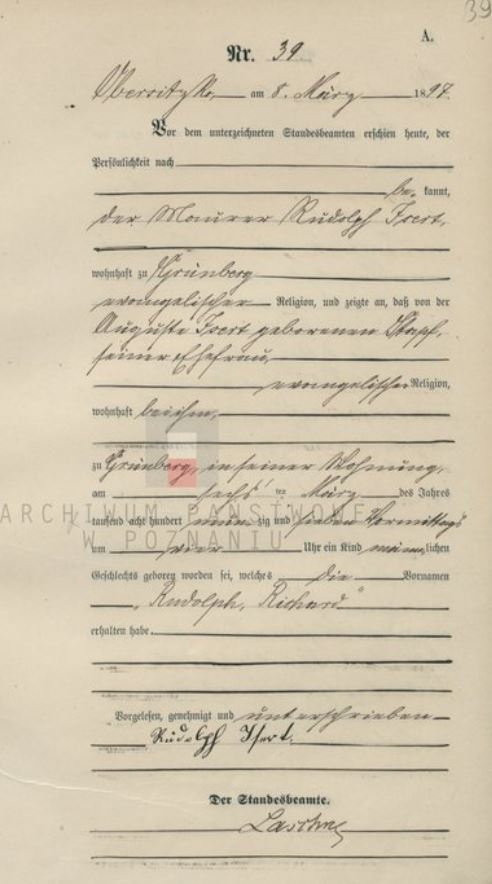 39
A.
Nr. 39
Obersitzko am 8. März 1897.
Vor dem unterzeichneten Standesbeamten erschien heute, der
Persönlichkeit nach
be kannt,
der Maurer Rudolph Isert,
wohnhaft zu Grünberg
evangelischer Religion, und zeigte an, daß von der
Auguste Isert geborenen Stapf,
seiner Ehefrau,
evangelischer Religion,
wohnhaft bei ihm,
zu Grünberg, in seiner Wohnung,
am sechs ten März des Jahres
tausend acht hundert neun zig und sieben Vormittags
um vier Uhr ein Kind männlichen
Geschlechts geboren worden sei, welches die Vornamen
„Rudolph, Richard"
erhalten habe.
Vorgelesen, genehmigt und unterschrieben
Rudolph Isert.
Der Standesbeamte.
ARCHIWUM PAŃSTWOWE
W POZNANIU